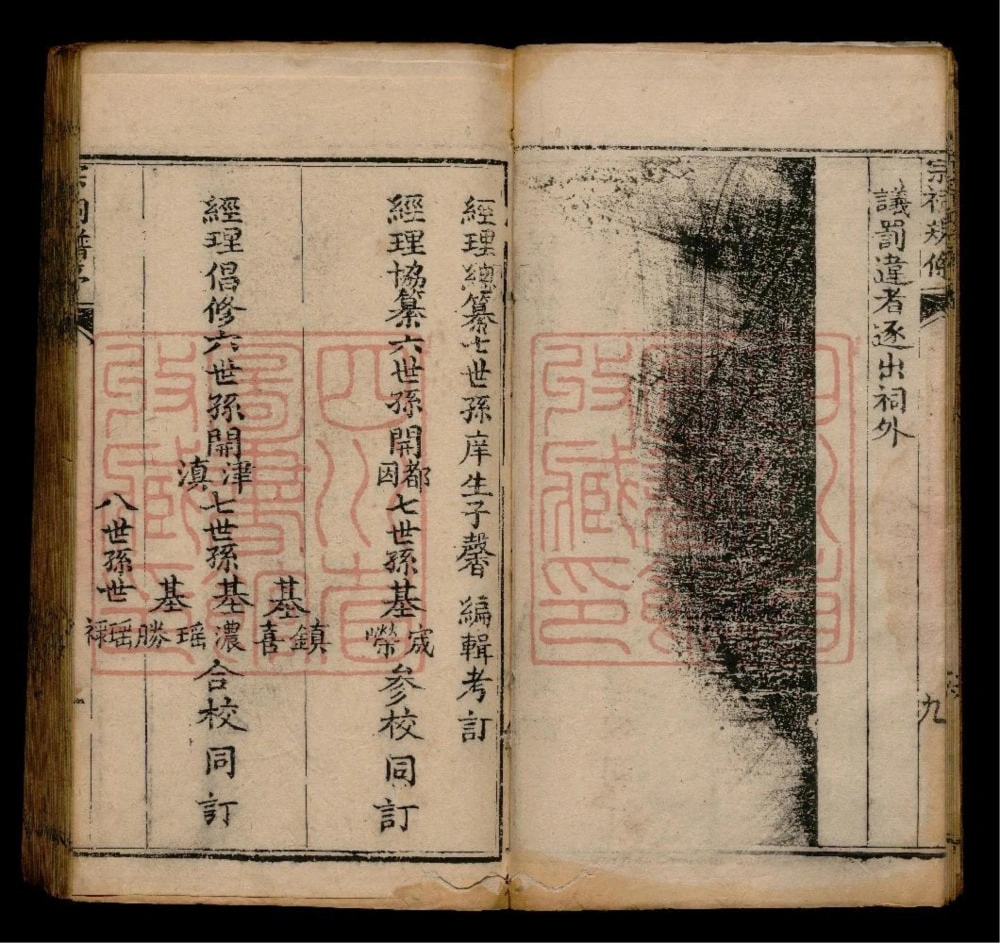 宗祠規條
九
議罰違者逐出祠外
經理總纂七世孫庠生子馨 編輯考訂
經理協纂六世孫開都因七世孫基宬榮参校同訂
經理倡修六世孫開津滇七世孫基鎮喜基濃瑶基勝瑶合校同訂
八世孫世祿
四川省圖書館收藏印
四川省圖書館收藏印